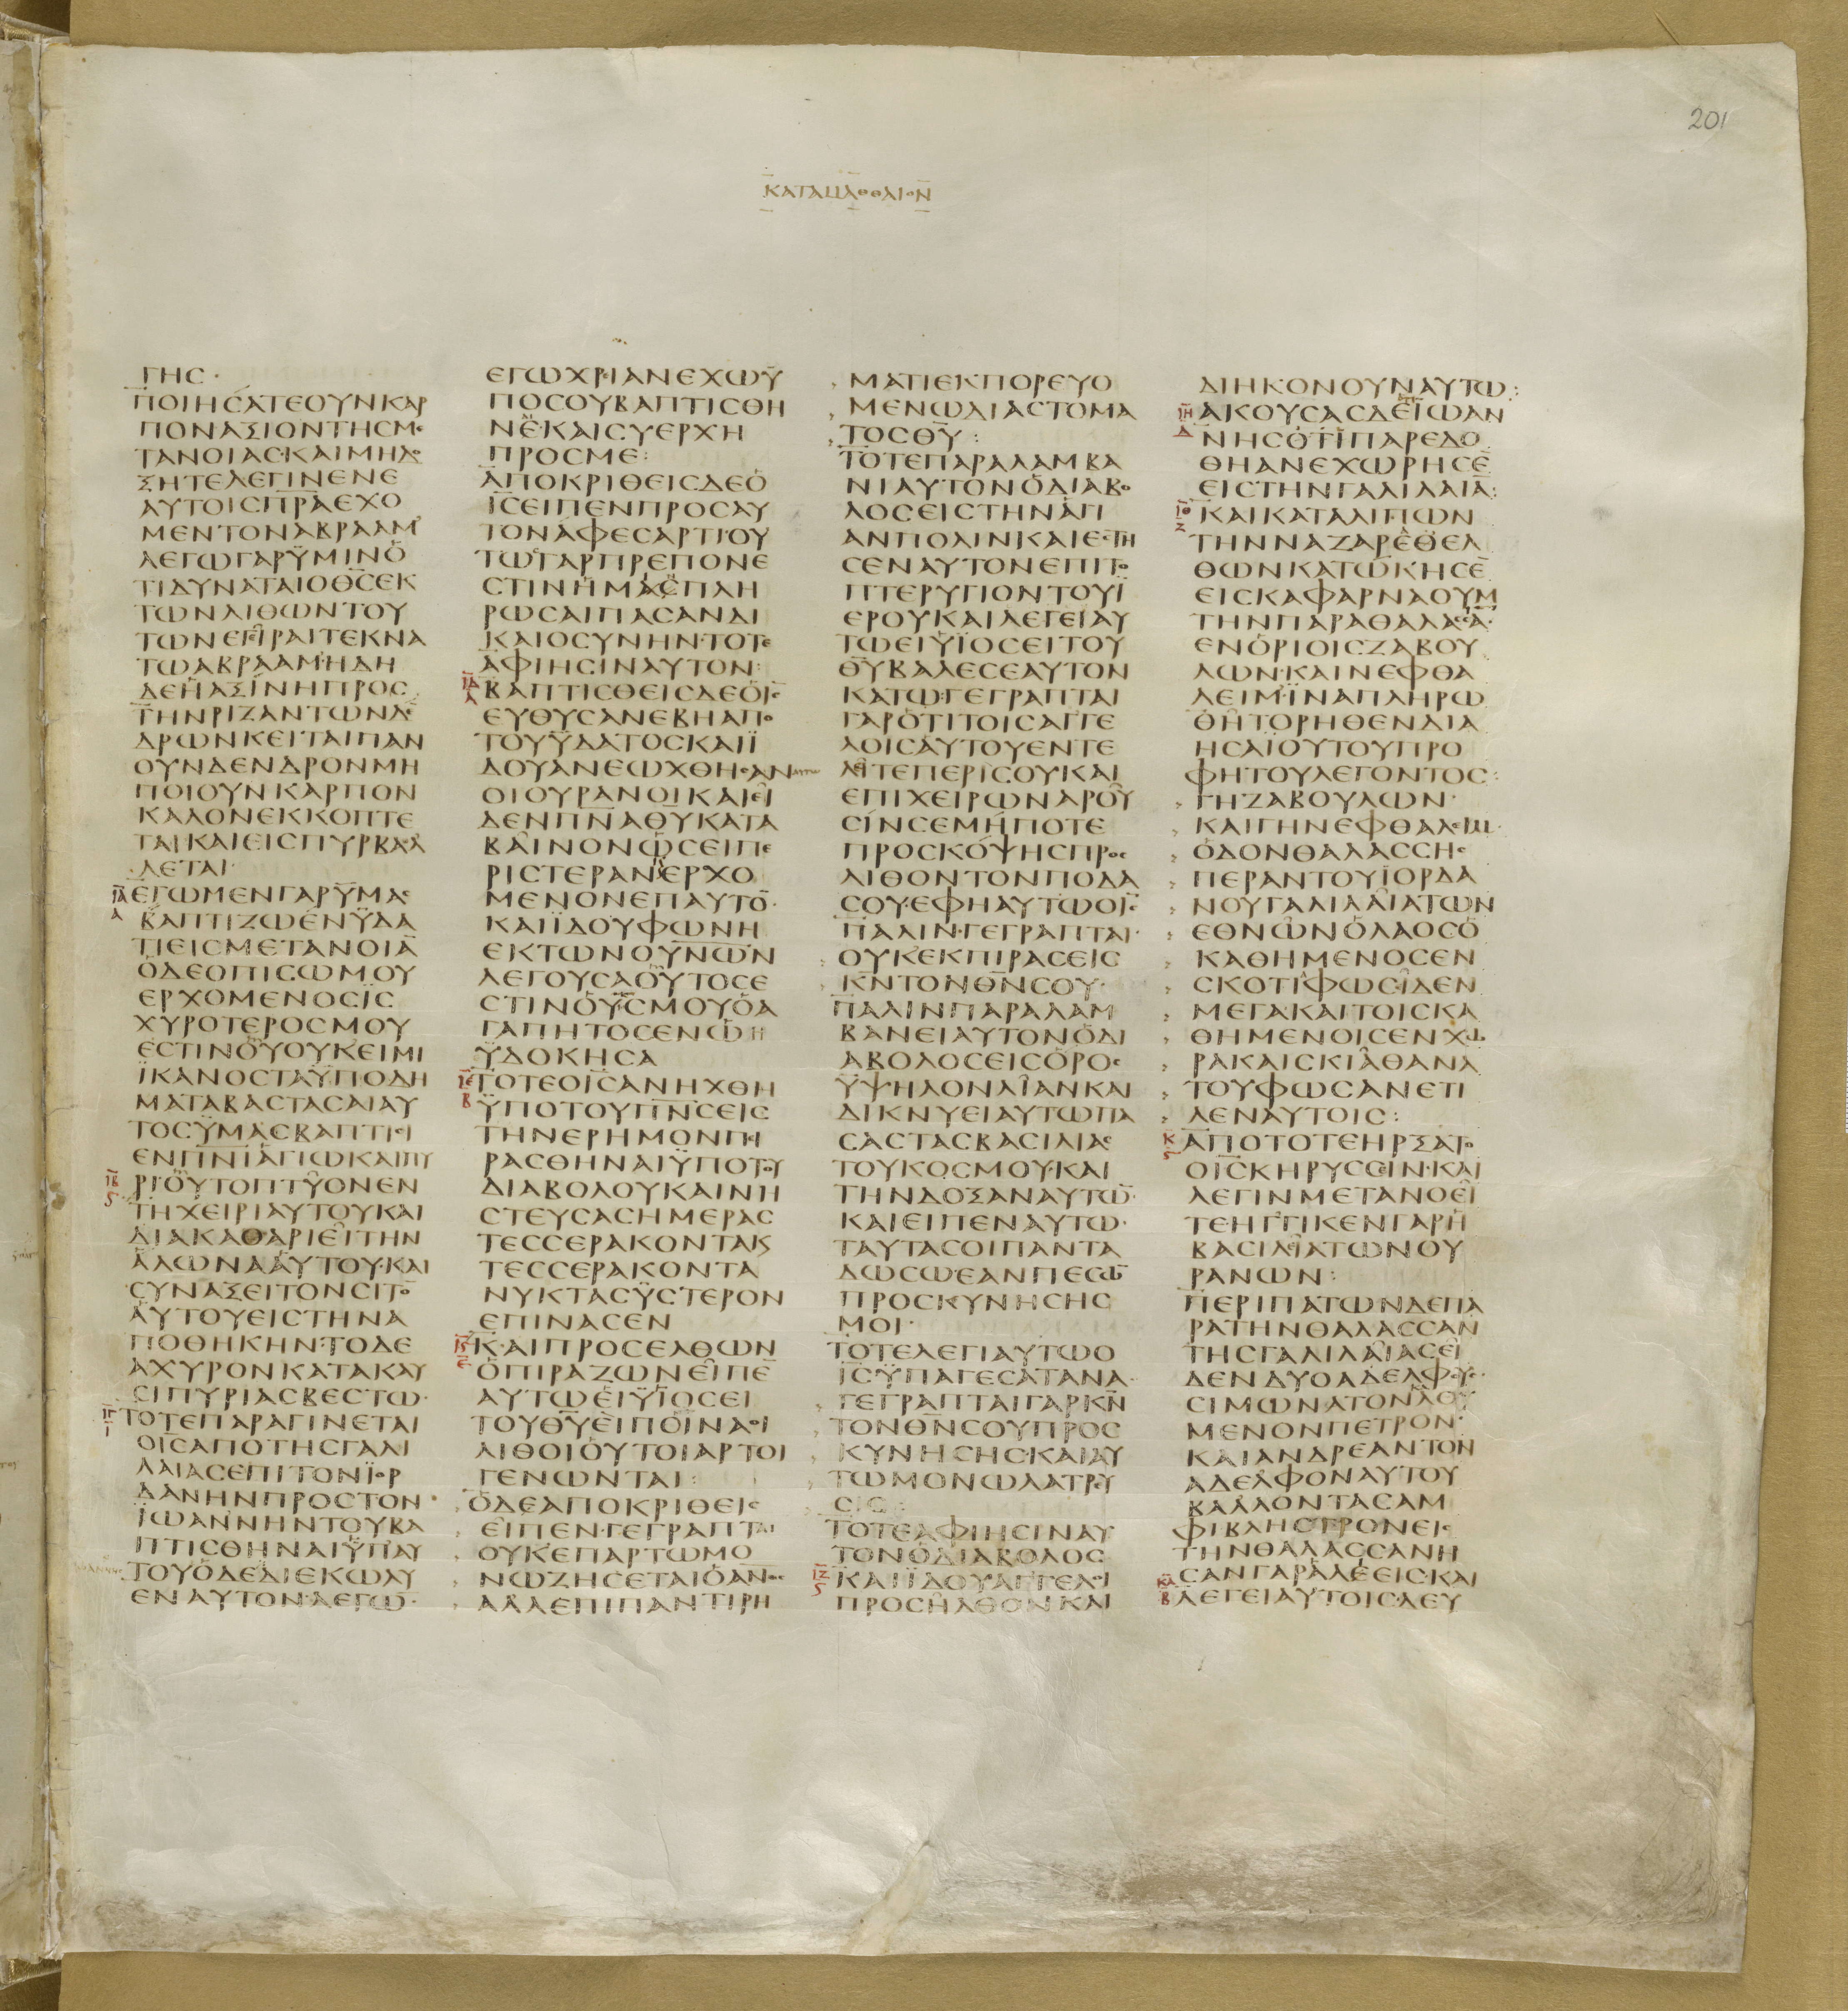 201
ΚΑΤΑΜΑΘΘΑΙΟΝ
ΓΗC·
ΠΟΙΗCΑΤΕΟΥΝΚΑΡ
ΠΟΝΑΞΙΟΝΤΗCΜΕ
ΤΑΝΟΙΑC·ΚΑΙΜΗΔΟ
ΞΗΤΕΛΕΓΙΝΕΝΕ
ΑΥΤΟΙCΠΡΑΕΧΟ
ΜΕΝΤΟΝΑΒΡΑΑΜ
ΛΕΓΩΓΑΡΫΜΙΝΟ
ΤΙΔΥΝΑΤΑΙΟΘ̅C̅ΕΚ
ΤΩΝΛΙΘΩΝΤΟΥ
ΤΩΝΕΓΙΡΑΙΤΕΚΝΑ
ΤΩΑΒΡΑΑΜ·ΗΔΗ
ΔΕΗΑΞΙΝΗΠΡΟC
ΤΗΝΡΙΖΑΝΤΩΝΔΕ
ΔΡΩΝΚΕΙΤΑΙΠΑΝ
ΟΥΝΔΕΝΔΡΟΝΜΗ
ΠΟΙΟΥΝΚΑΡΠΟΝ
ΚΑΛΟΝΕΚΚΟΠΤΕ
ΤΑΙΚΑΙΕΙCΠΥΡΒΑΛ
ΛΕΤΑΙ·
ΙΑ ΕΓΩΜΕΝΓΑΡΫΜΑC
Α ΒΑΠΤΙΖΩΕΝΫΔΑ
ΤΙΕΙCΜΕΤΑΝΟΙΑ̅
ΟΔΕΟΠΙCΩΜΟΥ
ΕΡΧΟΜΕΝΟCΪC
ΧΥΡΟΤΕΡΟCΜΟΥ
ΕCΤΙΝΟΥΟΥΚΕΙΜΙ
ΪΚΑΝΟCΤΑΫΠΟΔΗ
ΜΑΤΑΒΑCΤΑCΑΙΑΥ
ΤΟCΫΜΑCΒΑΠΤΙCΙ
ΕΝΠ̅Ν̅Ι̅ΑΓΙΩΚΑΙΠΥ
ΙΒ ΡΙ·ΟΥΤΟΠΤΥΟΝΕΝ
Ϛ ΤΗΧΕΙΡΙΑΥΤΟΥΚΑΙ
ΔΙΑΚΑΘΑΡΙΕΙΤΗΝ
ΑΛΩΝΑΑΥΤΟΥ·ΚΑΙ
CΥΝΑΞΕΙΤΟΝCΙΤΟ̅
ΑΥΤΟΥΕΙCΤΗΝΑ
ΠΟΘΗΚΗΝ·ΤΟΔΕ
ΑΧΥΡΟΝΚΑΤΑΚΑΥ
CΙΠΥΡΙΑCΒΕCΤΩ·
ΙΓ ΤΟΤΕΠΑΡΑΓΙΝΕΤΑΙ
Ι ΟΙ̅C̅ΑΠΟΤΗCΓΑΛΙ
ΛΑΙΑCΕΠΙΤΟΝΪΟΡ
ΔΑΝΗΝΠΡΟCΤΟΝ
ΪΩΑΝΝΗΝΤΟΥΒΑ
ΠΤΙCΘΗΝΑΙΫΠΑΥ
ΤΟΥΟΔΕΔΙΕΚΩΛΥ
ΕΝΑΥΤΟΝ·ΛΕΓΩ̅·
ΕΓΩΧΡΙΑΝΕΧΩΫ
ΠΟCΟΥΒΑΠΤΙCΘΗ
ΝΕ·ΚΑΙCΥΕΡΧΗ
ΠΡΟCΜΕ:
ΑΠΟΚΡΙΘΕΙCΔΕΟ
Ι̅C̅ΕΙΠΕΝΠΡΟCΑΥ
ΤΟΝΑΦΕCΑΡΤΙ·ΟΥ
ΤΩΓΑΡΠΡΕΠΟΝΕ
CΤΙΝΗΜΑCΠΛΗ
ΡΩCΑΙΠΑCΑΝΔΙ
ΚΑΙΟCΥΝΗΝ·ΤΟΤΕ
ΑΦΙΗCΙΝΑΥΤΟΝ:
ΙΔ ΒΑΠΤΙCΘΕΙCΔΕΟΙ̅C̅
Α ΕΥΘΥCΑΝΕΒΗΑΠΟ
ΤΟΥΫΔΑΤΟCΚΑΙΪ
ΔΟΥΑΝΕΩΧΘΗCΑΝ
ΟΙΟΥΡΑΝΟΙΚΑΙΕΙ
ΔΕΝΠ̅Ν̅Α̅Θ̅Υ̅ΚΑΤΑ
ΒΑΙΝΟΝΩCΕΙΠΕ
ΡΙCΤΕΡΑΝΕΡΧΟ
ΜΕΝΟΝΕΠΑΥΤΟ̅·
ΚΑΙΪΔΟΥΦΩΝΗ
ΕΚΤΩΝΟΥΝΩΝ
ΛΕΓΟΥCΑΟΥΤΟCΕ
CΤΙΝΟΥ̅C̅ΜΟΥΟΑ
ΓΑΠΗΤΟCΕΝΩΗ
ΫΔΟΚΗCΑ
ΙΕ ΤΟΤΕΟΙ̅C̅ΑΝΗΧΘΗ
Β ΫΠΟΤΟΥΠ̅Ν̅C̅ΕΙC
ΤΗΝΕΡΗΜΟΝΠΙ
ΡΑCΘΗΝΑΙΫΠΟΤΟΥ
ΔΙΑΒΟΛΟΥΚΑΙΝΗ
CΤΕΥCΑCΗΜΕΡΑC
ΤΕCCΕΡΑΚΟΝΤΑΚ̣
ΤΕCCΕΡΑΚΟΝΤΑ
ΝΥΚΤΑCΫCΤΕΡΟΝ
ΕΠΙΝΑCΕΝ
ΙϚ Κ·ΑΙΠΡΟCΕΛΘΩΝ
Ε ΟΠΙΡΑΖΩΝΕΙΠΕ̅
ΑΥΤΩΕΙΫΙΟCΕΙ
ΤΟΥΘ̅Υ̅ΕΙΠΟΪΝΑΟΙ
ΛΙΘΟΙΟΥΤΟΙΑΡΤΟΙ
ΓΕΝΩΝΤΑΙ:
ΟΔΕΑΠΟΚΡΙΘΕΙC
ΕΙΠΕΝ·ΓΕΓΡΑΠΤΑΙ
ΟΥΚΕΠΑΡΤΩΜΟ
ΝΩΖΗCΕΤΑΙΟΑΝΟC
ΑΛΛΕΠΙΠΑΝΤΙΡΗ
ΜΑΤΙΕΚΠΟΡΕΥΟ
ΜΕΝΩΔΙΑCΤΟΜΑ
ΤΟCΘ̅Υ̅:
ΤΟΤΕΠΑΡΑΛΑΜΒΑ
ΝΙΑΥΤΟΝΟΔΙΑΒΟ
ΛΟCΕΙCΤΗΝΑΓΙ
ΑΝΠΟΛΙΝΚΑΙΕCΤΗ
CΕΝΑΥΤΟΝΕΠΙΤΟ
ΠΤΕΡΥΓΙΟΝΤΟΥΪ
ΕΡΟΥΚΑΙΛΕΓΕΙΑΥ
ΤΩΕΙΫΙΟCΕΙΤΟΥ
Θ̅Υ̅ΒΑΛΕCΕΑΥΤΟΝ
ΚΑΤΩ:ΓΕΓΡΑΠΤΑΙ
ΓΑΡΟΤΙΤΟΙCΑΓΓΕ
ΛΟΙCΑΥΤΟΥΕΝΤΕ
ΛΙΤΕΠΕΡΙCΟΥΚΑΙ
ΕΠΙΧΕΙΡΩΝΑΡΟΥ
CΙΝCΕΜΗΠΟΤΕ
ΠΡΟCΚΟΨΗCΠΡΟC
ΛΙΘΟΝΤΟΝΠΟΔΑ
CΟΥ·ΕΦΗΑΥΤΩΟΙ̅C̅
ΠΑΛΙΝ·ΓΕΓΡΑΠΤΑΙ·
ΟΥΚΕΚΠΙΡΑCΕΙC
Κ̅Ν̅ΤΟΝΘ̅Ν̅CΟΥ·
ΠΑΛΙΝΠΑΡΑΛΑΜ
ΒΑΝΕΙΑΥΤΟΝΟΔΙ
ΑΒΟΛΟCΕΙCΟΡΟC
ΫΨΗΛΟΝΛΙΑΝΚΑΙ
ΔΙΚΝΥΕΙΑΥΤΩΠΑ
CΑCΤΑCΒΑCΙΛΙΑC
ΤΟΥΚΟCΜΟΥ·ΚΑΙ
ΤΗΝΔΟΞΑΝΑΥΤΩ̅·
ΚΑΙΕΙΠΕΝΑΥΤΩ·
ΤΑΥΤΑCΟΙΠΑΝΤΑ
ΔΩCΩΕΑΝΠΕCΩ̅
ΠΡΟCΚΥΝΗCΗC
ΜΟΙ·
ΤΟΤΕΛΕΓΙΑΥΤΩΟ
Ι̅C̅ΫΠΑΓΕCΑΤΑΝΑ·
ΓΕΓΡΑΠΤΑΙΓΑΡΚ̅Ν̅
ΤΟΝΘ̅Ν̅CΟΥΠΡΟC
ΚΥΝΗCΗC·ΚΑΙΑΥ
ΤΩΜΟΝΩΛΑΤΡΕΥ
CΙC:
ΤΟΤΕΑΦΙΗCΙΝΑΥ
ΤΟΝΟΔΙΑΒΟΛΟC
ΙΖ ΚΑΙΪΔΟΥΑΓΓΕΛΟΙ
Ϛ ΠΡΟCΗΛΘΟΝΚΑΙ
ΔΙΗΚΟΝΟΥΝΑΥΤΩ:
ΙΗ ΑΚΟΥCΑCΔΕΪΩΑΝ
Δ ΝΗCΟΤΙΠΑΡΕΔΟ
ΘΗΑΝΕΧΩΡΗCΕ̅
ΕΙCΤΗΝΓΑΛΙΛΑΙΑ̅:
ΙΘ ΚΑΙΚΑΤΑΛΙΠΩΝ
Ζ ΤΗΝΝΑΖΑΡΕΘΕΛ
ΘΩΝΚΑΤΩΚΗCΕ̅
ΕΙCΚΑΦΑΡΝΑΟΥΜ
ΤΗΝΠΑΡΑΘΑΛΑCCΑ̅·
ΕΝΟΡΙΟΙCΖΑΒΟΥ
ΛΩΝ·ΚΑΙΝΕΦΘΑ
ΛΕΙΜ·ΪΝΑΠΛΗΡΩ
ΘΗΤΟΡΗΘΕΝΔΙΑ
ΗCΑΪΟΥΤΟΥΠΡΟ
ΦΗΤΟΥΛΕΓΟΝΤΟC:
ΓΗΖΑΒΟΥΛΩΝ·
ΚΑΙΓΗΝΕΦΘΑΛΕΙΜ·
ΟΔΟΝΘΑΛΑCCΗC
ΠΕΡΑΝΤΟΥΪΟΡΔΑ
ΝΟΥΓΑΛΙΛΑΙΑΤΩΝ
ΕΘΝΩΝΟΛΑΟCΟ
ΚΑΘΗΜΕΝΟCΕΝ
CΚΟΤΙΦΩCΙΔΕΝ
ΜΕΓΑΚΑΙΤΟΙCΚΑ
ΘΗΜΕΝΟΙCΕΝΧΩ
ΡΑΚΑΙCΚΙΑΘΑΝΑ
ΤΟΥΦΩCΑΝΕΤΙ
ΛΕΝΑΥΤΟΙC:
Κ ΑΠΟΤΟΤΕΗΡΞΑΤΟ
Ϛ ΟΙ̅C̅ΚΗΡΥCCΙΝ·ΚΑΙ
ΛΕΓΙΝΜΕΤΑΝΟΕΙ
ΤΕΗΓΓΙΚΕΝΓΑΡΗ
ΒΑCΙΛΙΑΤΩΝΟΥ
ΡΑΝΩΝ:
ΠΕΡΙΠΑΤΩΝΔΕΠΑ
ΡΑΤΗΝΘΑΛΑCCΑΝ
ΤΗCΓΑΛΙΛΑΙΑCΕΙ
ΔΕΝΔΥΟΑΔΕΛΦΟΥC·
CΙΜΩΝΑΤΟΝΛΟΥ
ΜΕΝΟΝΠΕΤΡΟΝ·
ΚΑΙΑΝΔΡΕΑΝΤΟΝ
ΑΔΕΛΦΟΝΑΥΤΟΥ
ΒΑΛΛΟΝΤΑCΑΜ
ΦΙΒΛΗCΤΡΟΝΕΙC
ΤΗΝΘΑΛΑCCΑΝΗ
CΑΝΓΑΡΑΛΕΕΙC·ΚΑΙ
ΚΑ
Β ΛΕΓΕΙΑΥΤΟΙC·ΔΕΥ